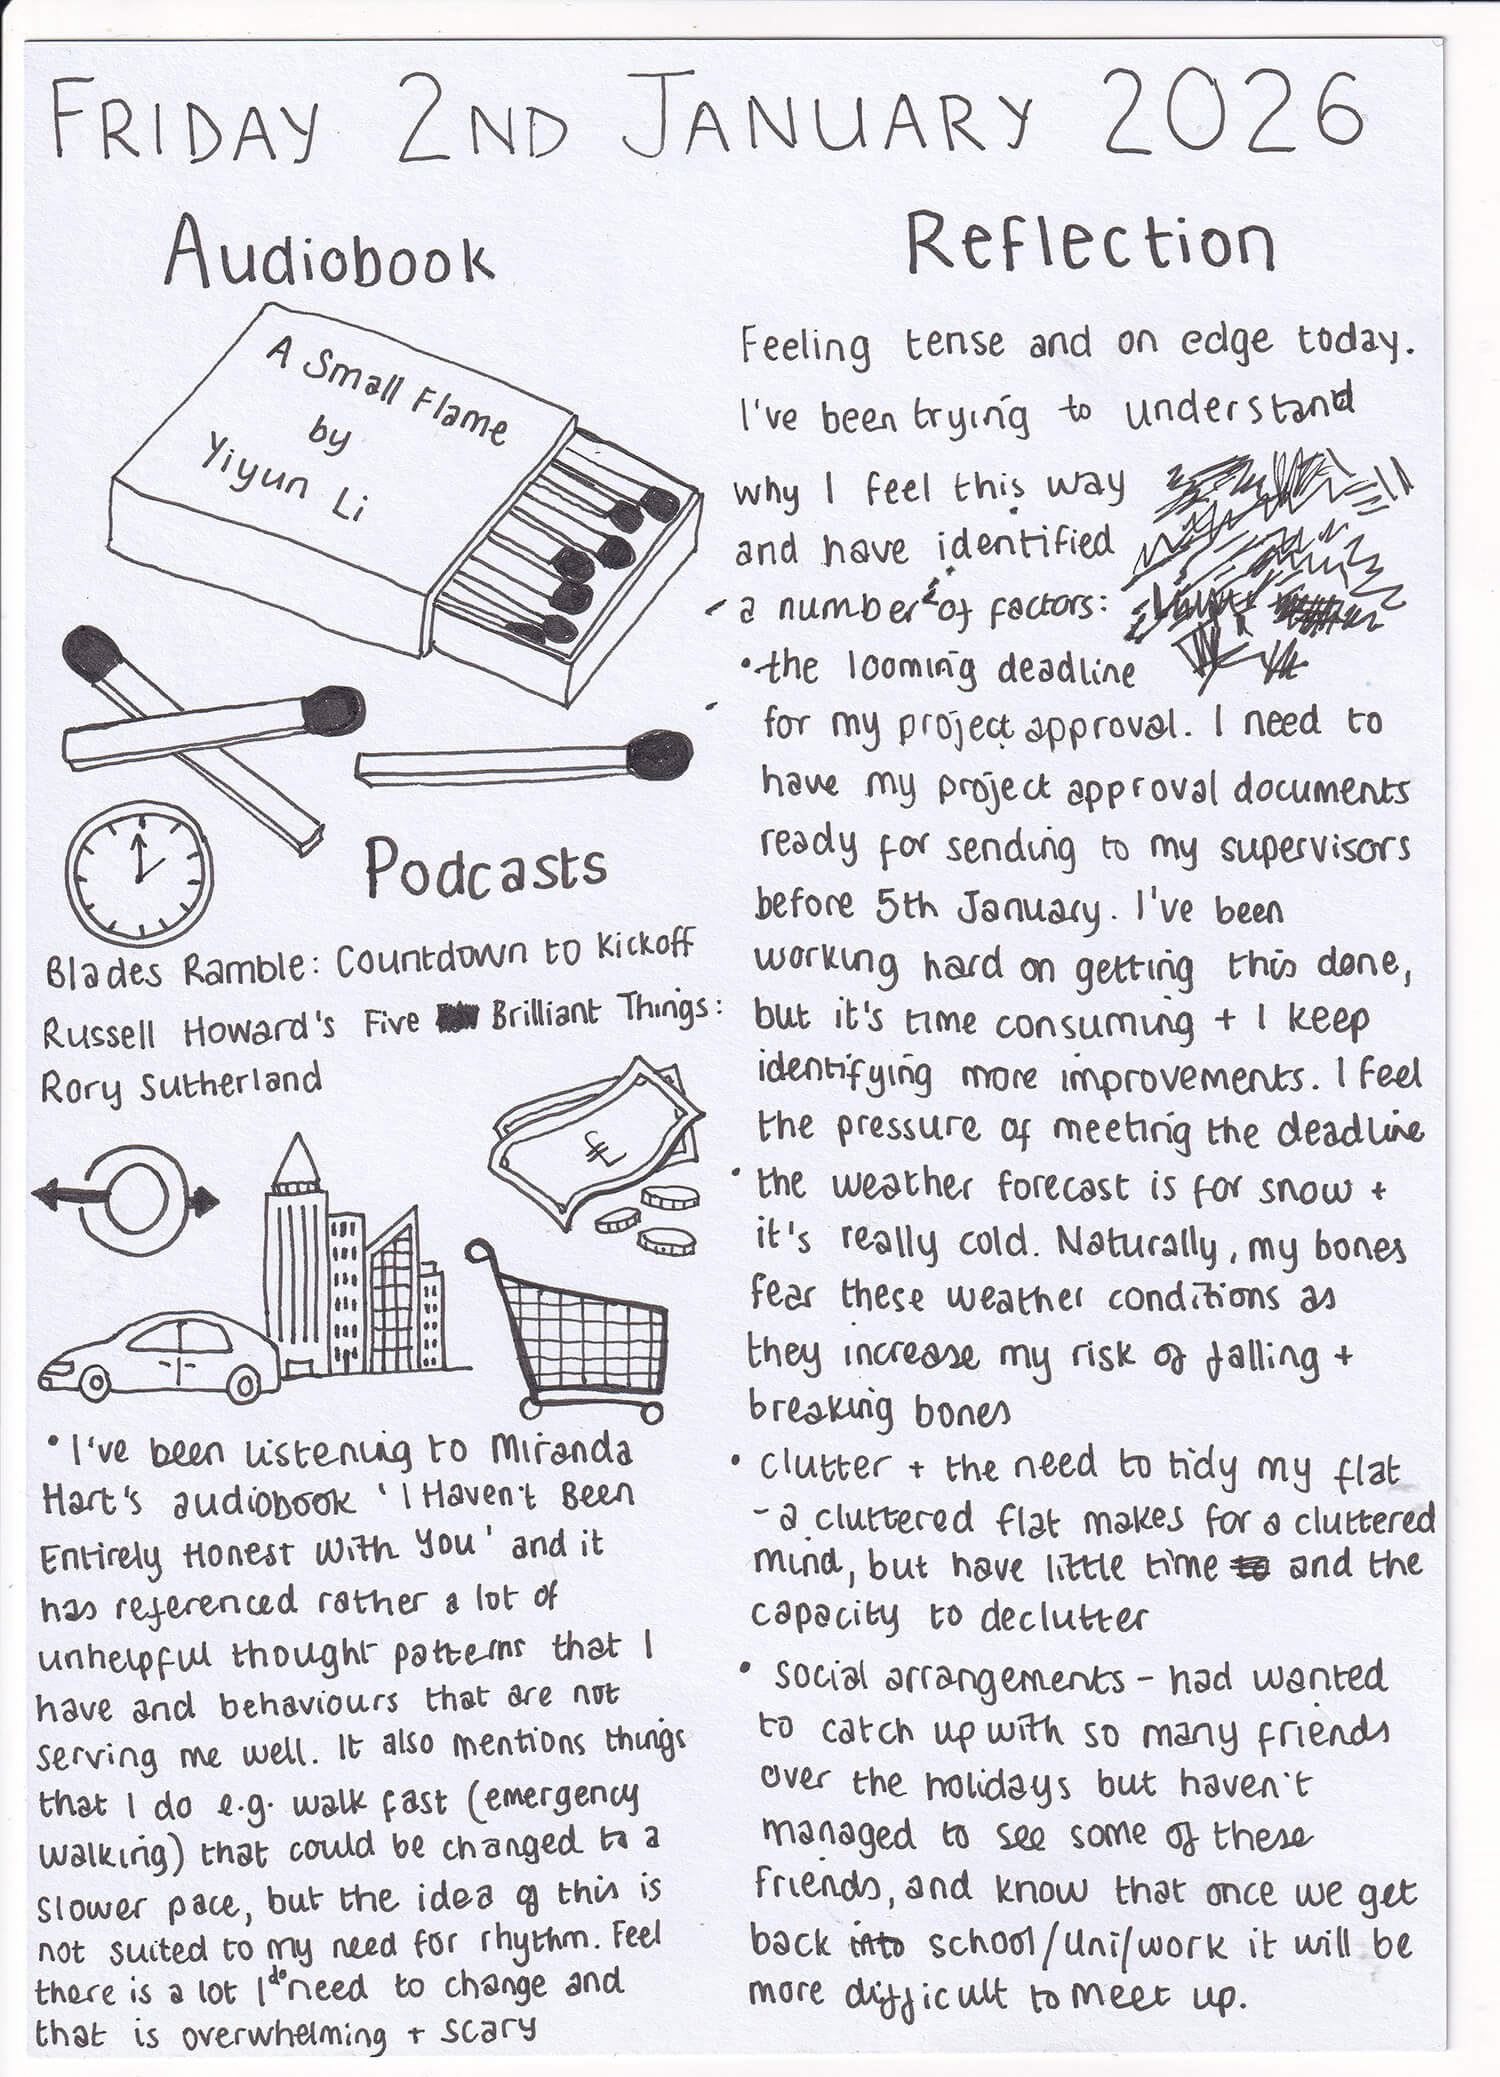 FRIDAY 2ND JANUARY 2026
Audiobook
A Small Flame
by
Yiyun Li
Podcasts
Blades Ramble: Countdown to Kickoff
Russell Howard's Five Brilliant Things:
Rory Sutherland
£
• I've been listening to Miranda
Hart's audiobook 'I Haven't Been
Entirely Honest With You' and it
has referenced rather a lot of
unhelpful thought patterns that I
have and behaviours that are not
serving me well. It also mentions things
that I do e.g. walk fast (emergency
walking) that could be changed to a
slower pace, but the idea of this is
not suited to my need for rhythm. Feel
there is a lot I do need to change and
that is overwhelming + scary
Reflection
Feeling tense and on edge today.
I've been trying to understand
why I feel this way
and have identified
a number of factors:
• the looming deadline
for my project approval. I need to
have my project approval documents
ready for sending to my supervisors
before 5th January. I've been
working hard on getting this done,
but it's time consuming + I keep
identifying more improvements. I feel
the pressure of meeting the deadline
• the weather forecast is for snow +
it's really cold. Naturally, my bones
fear these weather conditions as
they increase my risk of falling +
breaking bones
• clutter + the need to tidy my flat
- a cluttered flat makes for a cluttered
mind, but have little time to and the
capacity to declutter
• social arrangements - had wanted
to catch up with so many friends
over the holidays but haven't
managed to see some of these
friends, and know that once we get
back into school/uni/work it will be
more difficult to meet up.